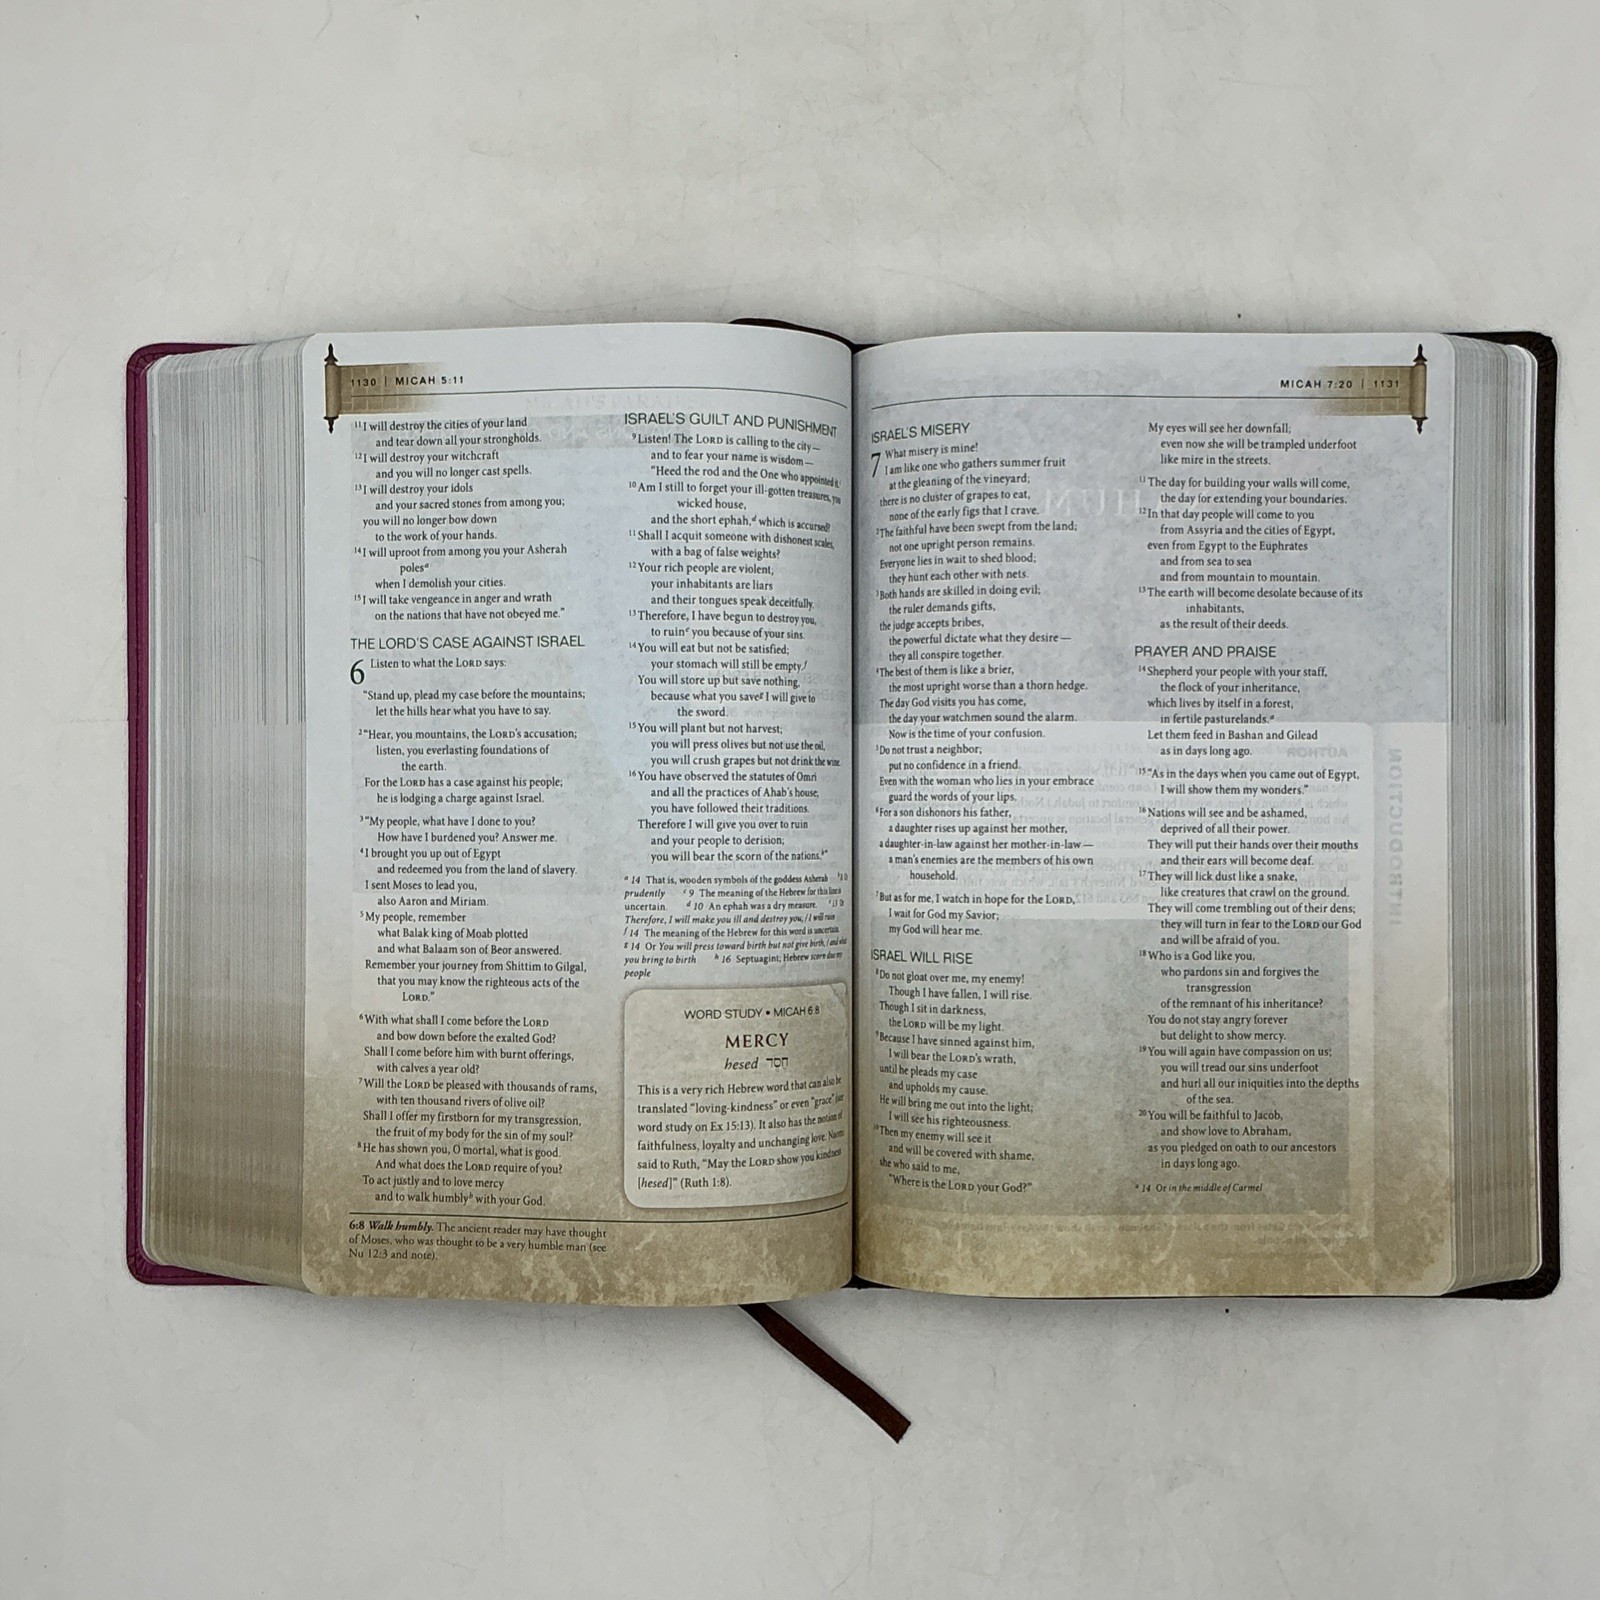 1130 | MICAH 5:11
¹¹I will destroy the cities of your land
and tear down all your strongholds.
¹²I will destroy your witchcraft
and you will no longer cast spells.
¹³I will destroy your idols
and your sacred stones from among you;
you will no longer bow down
to the work of your hands.
¹⁴I will uproot from among you your Asherah
polesᵃ
when I demolish your cities.
¹⁵I will take vengeance in anger and wrath
on the nations that have not obeyed me."
THE LORD'S CASE AGAINST ISRAEL
6 Listen to what the LORD says:
"Stand up, plead my case before the mountains;
let the hills hear what you have to say.
²"Hear, you mountains, the LORD's accusation;
listen, you everlasting foundations of
the earth.
For the LORD has a case against his people;
he is lodging a charge against Israel.
³"My people, what have I done to you?
How have I burdened you? Answer me.
⁴I brought you up out of Egypt
and redeemed you from the land of slavery.
I sent Moses to lead you,
also Aaron and Miriam.
⁵My people, remember
what Balak king of Moab plotted
and what Balaam son of Beor answered.
Remember your journey from Shittim to Gilgal,
that you may know the righteous acts of the
LORD."
⁶With what shall I come before the LORD
and bow down before the exalted God?
Shall I come before him with burnt offerings,
with calves a year old?
⁷Will the LORD be pleased with thousands of rams,
with ten thousand rivers of olive oil?
Shall I offer my firstborn for my transgression,
the fruit of my body for the sin of my soul?
⁸He has shown you, O mortal, what is good.
And what does the LORD require of you?
To act justly and to love mercy
and to walk humblyᵇ with your God.
6:8 Walk humbly. The ancient reader may have thought
of Moses, who was thought to be a very humble man (see
Nu 12:3 and note).
ISRAEL'S GUILT AND PUNISHMENT
⁹Listen! The LORD is calling to the city—
and to fear your name is wisdom—
"Heed the rod and the One who appointed it.
¹⁰Am I still to forget your ill-gotten treasures, you
wicked house,
and the short ephah,ᵈ which is accursed?
¹¹Shall I acquit someone with dishonest scales,
with a bag of false weights?
¹²Your rich people are violent,
your inhabitants are liars
and their tongues speak deceitfully.
¹³Therefore, I have begun to destroy you,
to ruinᵉ you because of your sins.
¹⁴You will eat but not be satisfied;
your stomach will still be empty.ᶠ
You will store up but save nothing,
because what you saveᵍ I will give to
the sword.
¹⁵You will plant but not harvest;
you will press olives but not use the oil,
you will crush grapes but not drink the wine.
¹⁶You have observed the statutes of Omri
and all the practices of Ahab's house,
you have followed their traditions.
Therefore I will give you over to ruin
and your people to derision;
you will bear the scorn of the nations.ʰ"
ᵃ 14 That is, wooden symbols of the goddess Asherah
prudently ᶜ 9 The meaning of the Hebrew for this line is
uncertain. ᵈ 10 An ephah was a dry measure. ᵉ 13 Or
Therefore, I will make you ill and destroy you; / I will ruin
ᶠ 14 The meaning of the Hebrew for this word is uncertain.
ᵍ 14 Or You will press toward birth but not give birth, / and what
you bring to birth ʰ 16 Septuagint; Hebrew scorn due my
people
WORD STUDY • MICAH 6:8
MERCY
hesed חסד
This is a very rich Hebrew word that can also be
translated "loving-kindness" or even "grace" (see
word study on Ex 15:13). It also has the notion of
faithfulness, loyalty and unchanging love. Naomi
said to Ruth, "May the LORD show you kindness
[hesed]" (Ruth 1:8).
MICAH 7:20 | 1131
ISRAEL'S MISERY
7 What misery is mine!
I am like one who gathers summer fruit
at the gleaning of the vineyard;
there is no cluster of grapes to eat,
none of the early figs that I crave.
²The faithful have been swept from the land;
not one upright person remains.
Everyone lies in wait to shed blood;
they hunt each other with nets.
³Both hands are skilled in doing evil;
the ruler demands gifts,
the judge accepts bribes,
the powerful dictate what they desire—
they all conspire together.
⁴The best of them is like a brier,
the most upright worse than a thorn hedge.
The day God visits you has come,
the day your watchmen sound the alarm.
Now is the time of your confusion.
⁵Do not trust a neighbor;
put no confidence in a friend.
Even with the woman who lies in your embrace
guard the words of your lips.
⁶For a son dishonors his father,
a daughter rises up against her mother,
a daughter-in-law against her mother-in-law—
a man's enemies are the members of his own
household.
⁷But as for me, I watch in hope for the LORD,
I wait for God my Savior;
my God will hear me.
ISRAEL WILL RISE
⁸Do not gloat over me, my enemy!
Though I have fallen, I will rise.
Though I sit in darkness,
the LORD will be my light.
⁹Because I have sinned against him,
I will bear the LORD's wrath,
until he pleads my case
and upholds my cause.
He will bring me out into the light;
I will see his righteousness.
¹⁰Then my enemy will see it
and will be covered with shame,
she who said to me,
"Where is the LORD your God?"
My eyes will see her downfall;
even now she will be trampled underfoot
like mire in the streets.
¹¹The day for building your walls will come,
the day for extending your boundaries.
¹²In that day people will come to you
from Assyria and the cities of Egypt,
even from Egypt to the Euphrates
and from sea to sea
and from mountain to mountain.
¹³The earth will become desolate because of its
inhabitants,
as the result of their deeds.
PRAYER AND PRAISE
¹⁴Shepherd your people with your staff,
the flock of your inheritance,
which lives by itself in a forest,
in fertile pasturelands.ᵃ
Let them feed in Bashan and Gilead
as in days long ago.
¹⁵"As in the days when you came out of Egypt,
I will show them my wonders."
¹⁶Nations will see and be ashamed,
deprived of all their power.
They will put their hands over their mouths
and their ears will become deaf.
¹⁷They will lick dust like a snake,
like creatures that crawl on the ground.
They will come trembling out of their dens;
they will turn in fear to the LORD our God
and will be afraid of you.
¹⁸Who is a God like you,
who pardons sin and forgives the
transgression
of the remnant of his inheritance?
You do not stay angry forever
but delight to show mercy.
¹⁹You will again have compassion on us;
you will tread our sins underfoot
and hurl all our iniquities into the depths
of the sea.
²⁰You will be faithful to Jacob,
and show love to Abraham,
as you pledged on oath to our ancestors
in days long ago.
ᵃ 14 Or in the middle of Carmel